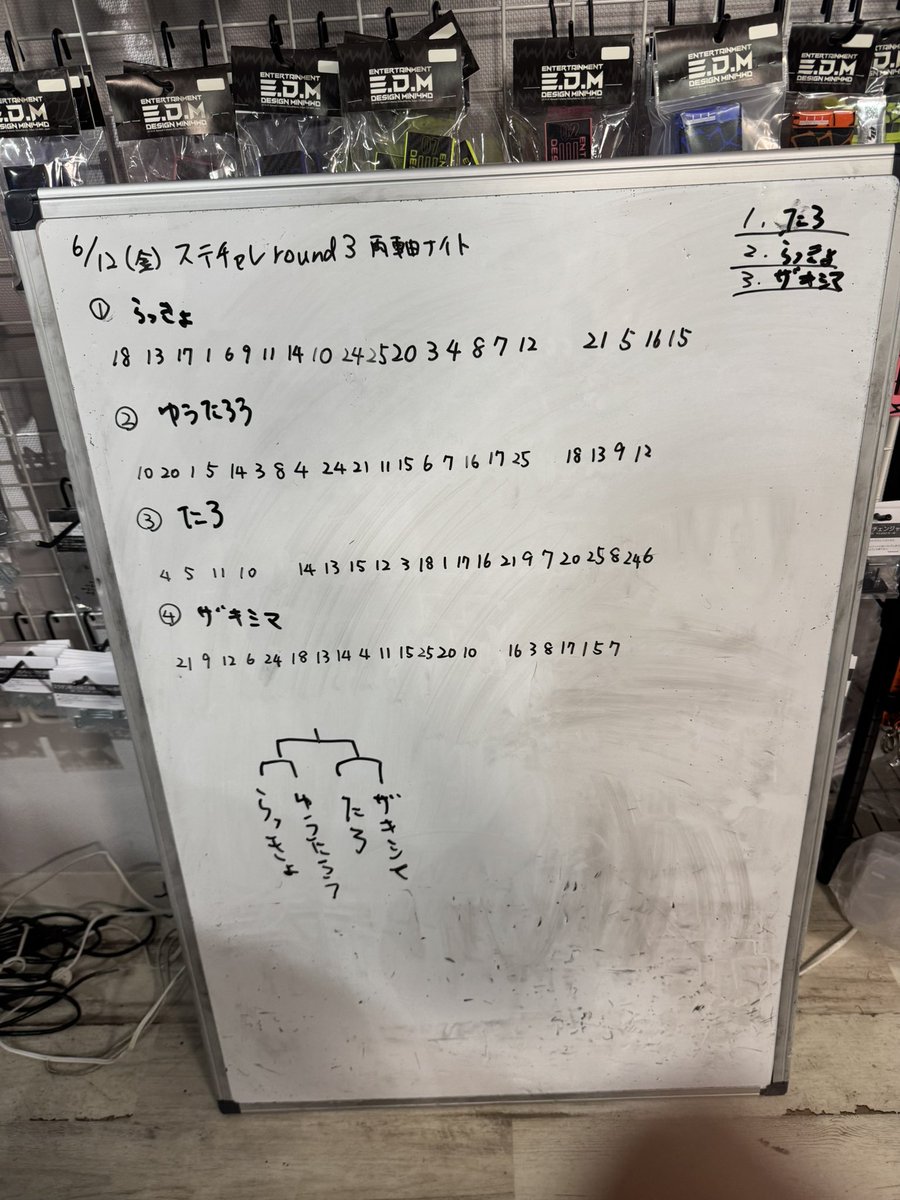 ENTERTAINMENT
E.D.M
DESIGN MINI4WD
ENTERTAINMENT
E.D.M
DESIGN MINI4WD
ENTERTAINMENT
E.D.M
DESIGN MINI4WD
ENTERTAINMENT
E.D.M
DESIGN MINI4WD
ENTERTAINMENT
E.D.M
DESIGN MINI4WD
1. たろ
2. らっきょ
3. ザキシマ
6/12 (金) ステチャレ round3 両軸ナイト
① らっきょ
18 13 17 1 6 9 11 14 10 24 25 20 3 4 8 7 12 21 5 16 15
② ゆうたろう
10 20 1 5 14 3 8 4 24 21 11 15 6 7 16 17 25 18 13 9 12
③ たろ
4 5 11 10 14 13 15 12 3 18 1 17 16 21 9 7 20 25 8 24 6
④ ザキシマ
21 9 12 6 24 18 13 14 4 11 15 25 20 10 16 3 8 17 1 5 7
らっきょ
ゆうたろう
たろ
ザキシマ